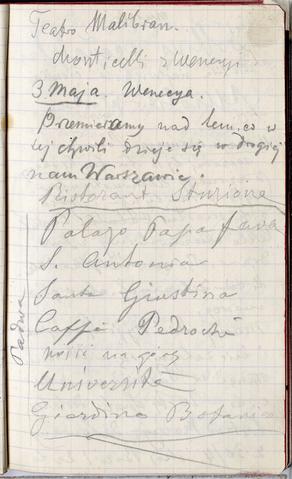 Teatro Malibran.
Monticelli z Wenecyi
3 Maja. Wenecya.
Przemieramy nad tem, co w
tej chwili dzieje się w drogiej
nam Warszawie.
Ristorant Sturione
Palazo Papafava
S. Antonia
Santa Giustina
Caffè Pedrochi
na górę
Università
Giardino Botanico
Padwa